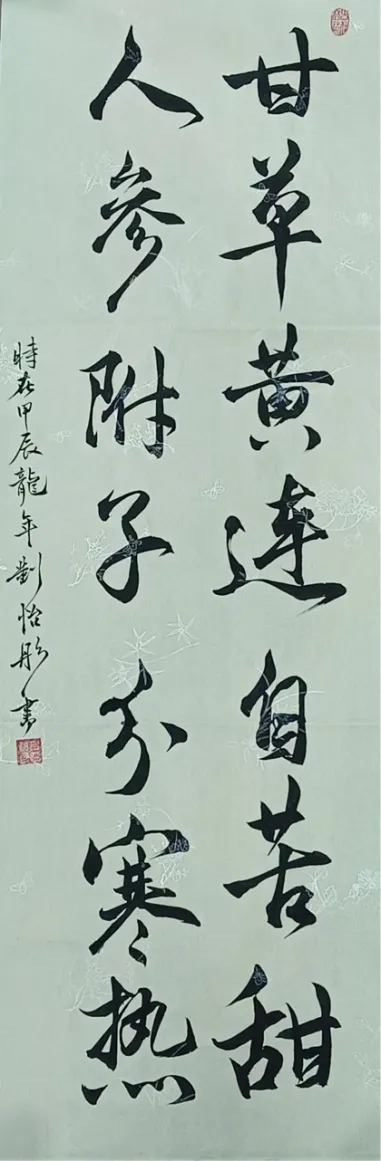 甘草黄连自苦甜
人参附子分寒热
時在甲辰龍年劉怡彤書